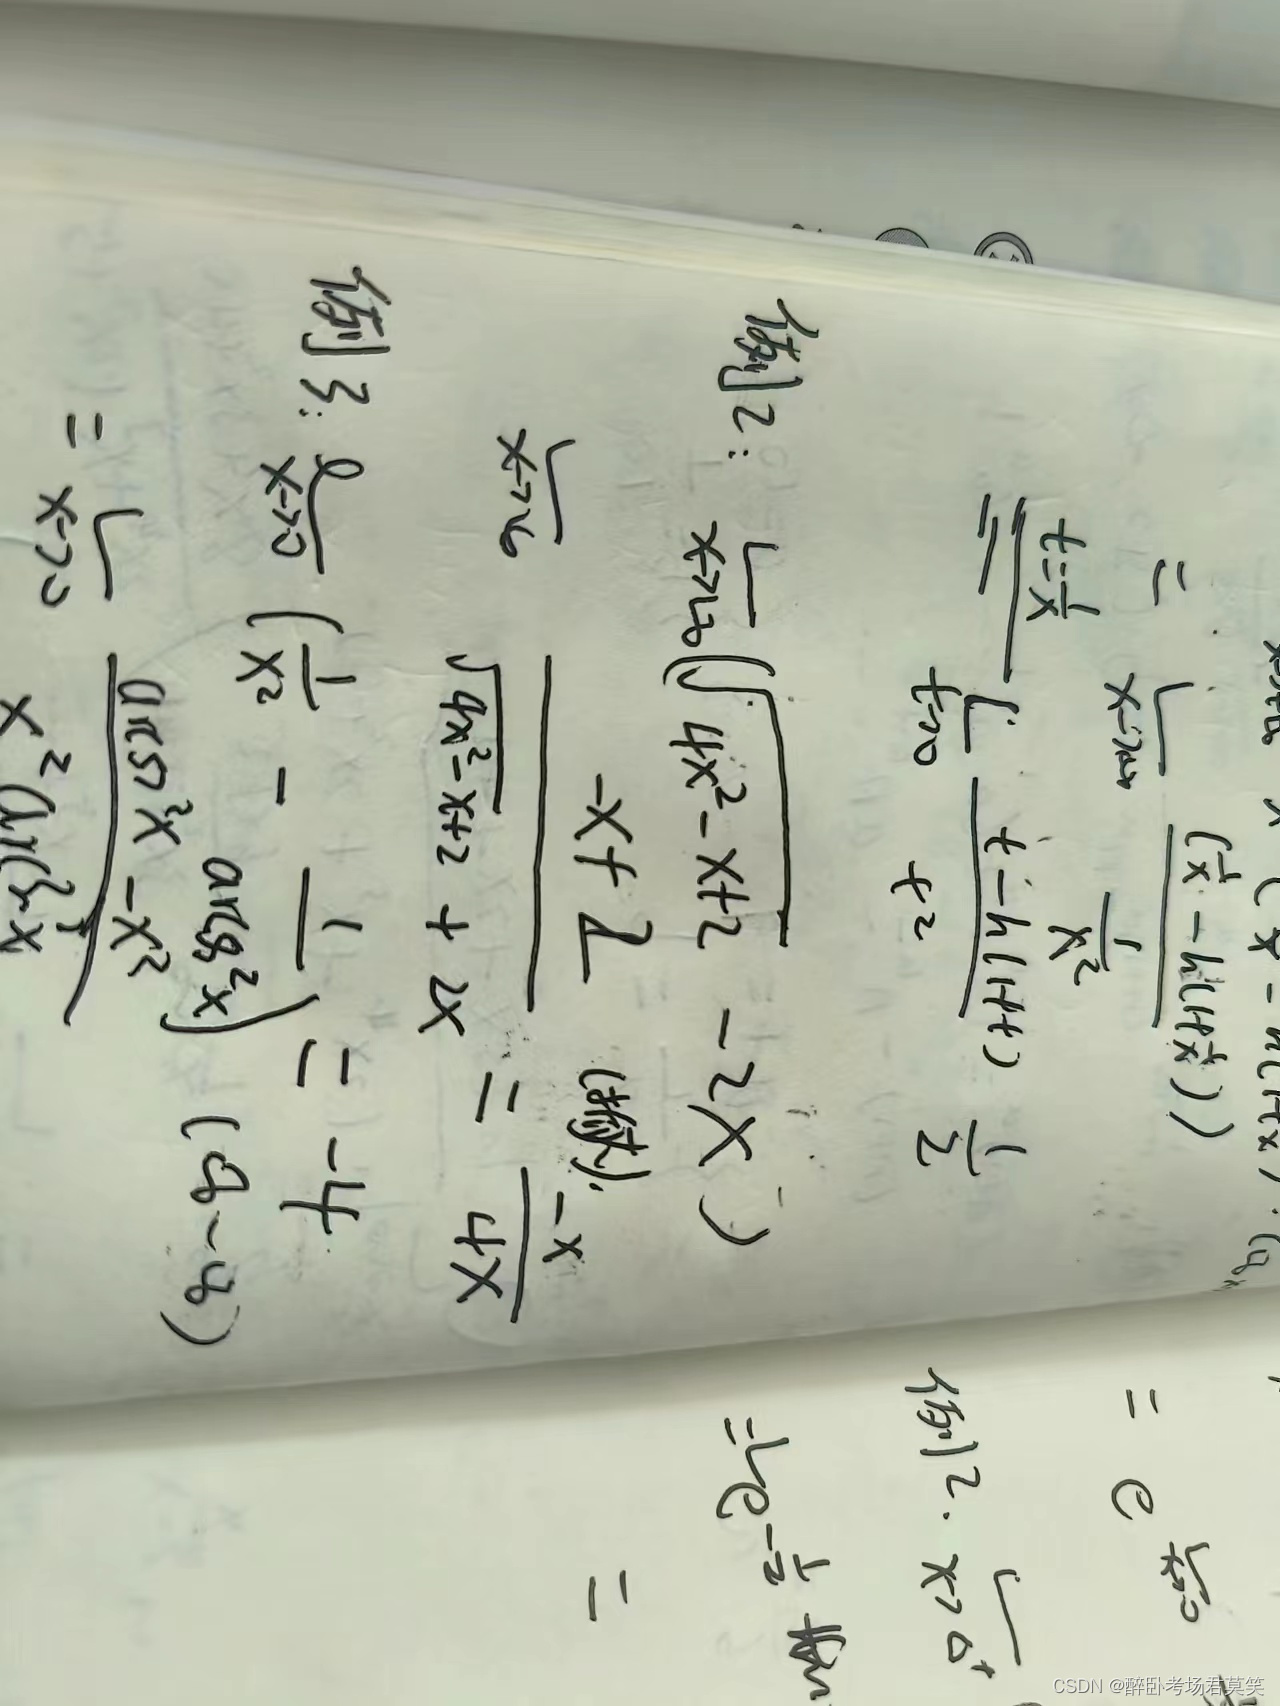 = lim x→+∞ (1/x - ln(1+1/x)) / (1/x²)
t=1/x
== lim t→0 (t - ln(1+t)) / t² 1/2
例2: lim x→+∞ (√(4x²-x+2) - 2x)
lim x→+∞ (-x+2) / (√(4x²-x+2) + 2x) = -x/4x
= -1/4
例3: lim x→0 (1/x² - 1/arcsin²x) (∞-∞)
= lim x→0 (arcsin²x - x²) / (x² arcsin²x)
= e lim x→0
例2. lim x→0⁺
= e^(-1/2)
=
CSDN @醉卧考场君莫笑